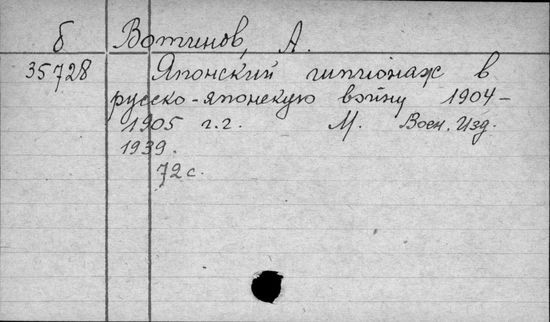 б Вотинов, А.
35728 Японский шпионаж в
русско-японскую войну 1904-
1905 г.г. М. Воен. Изд.
1939.
72 с.